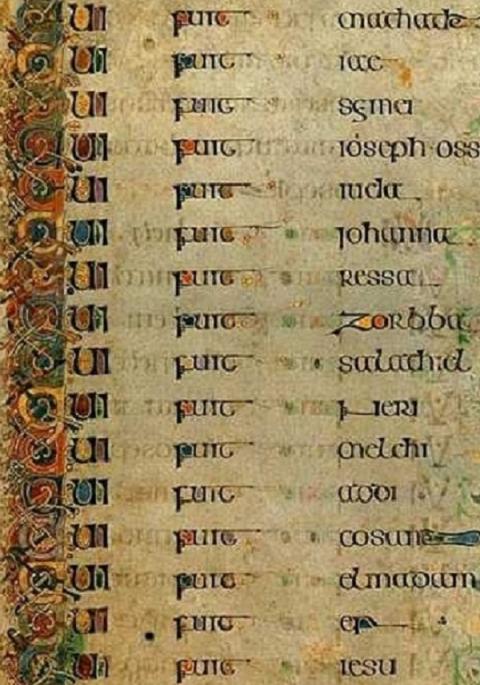 Qui fuit
Qui fuit
Qui fuit semei
Qui fuit ioseph oss
Qui fuit iuda
Qui fuit iohanna
Qui fuit ressa
Qui fuit zorbba
Qui fuit salathiel
Qui fuit neri
Qui fuit melchi
Qui fuit addi
Qui fuit cosam
Qui fuit elmadam
Qui fuit er
Qui fuit iesu